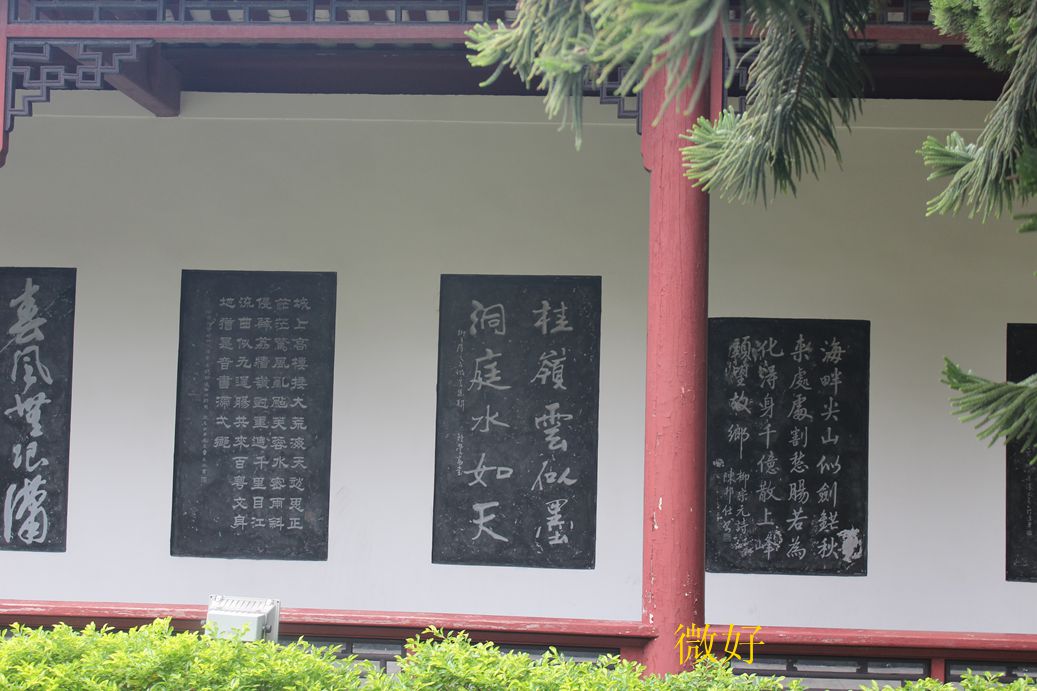 海畔尖山似劍鋩秋
來處處割愁腸若為
化得身千億散上峰
頭望故鄉
柳宗元詩
桂嶺雲似墨
洞庭水如天
城上高樓接大荒海天愁思正
茫茫驚風亂颭芙蓉水密雨斜
侵薜荔牆嶺樹重遮千里目江
流曲似九迴腸共來百粵文身
地猶是音書滯弌鄉
春風無限瀟
微好